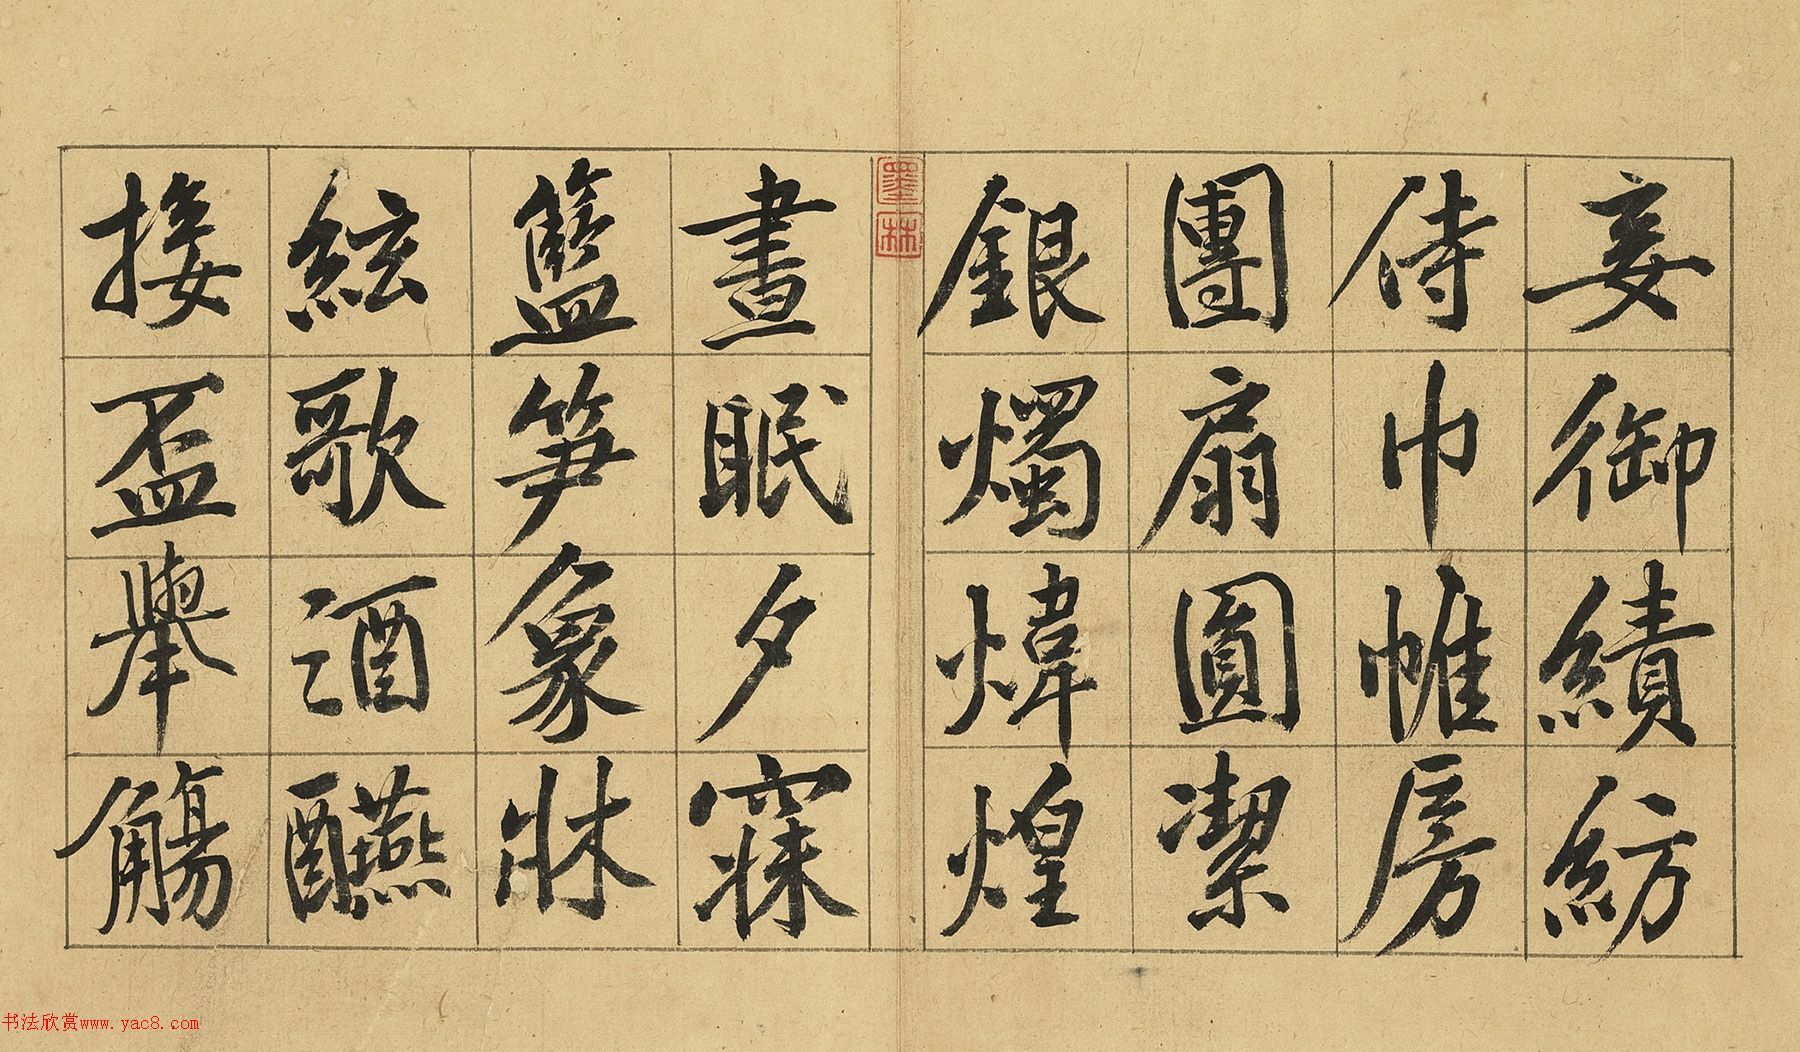 妾御績紡
侍巾帷房
團扇圓潔
銀燭煒煌
墨林
晝眠夕寐
籃笋象牀
絃歌酒醼
接盃舉觴
书法欣赏www.yac8.com